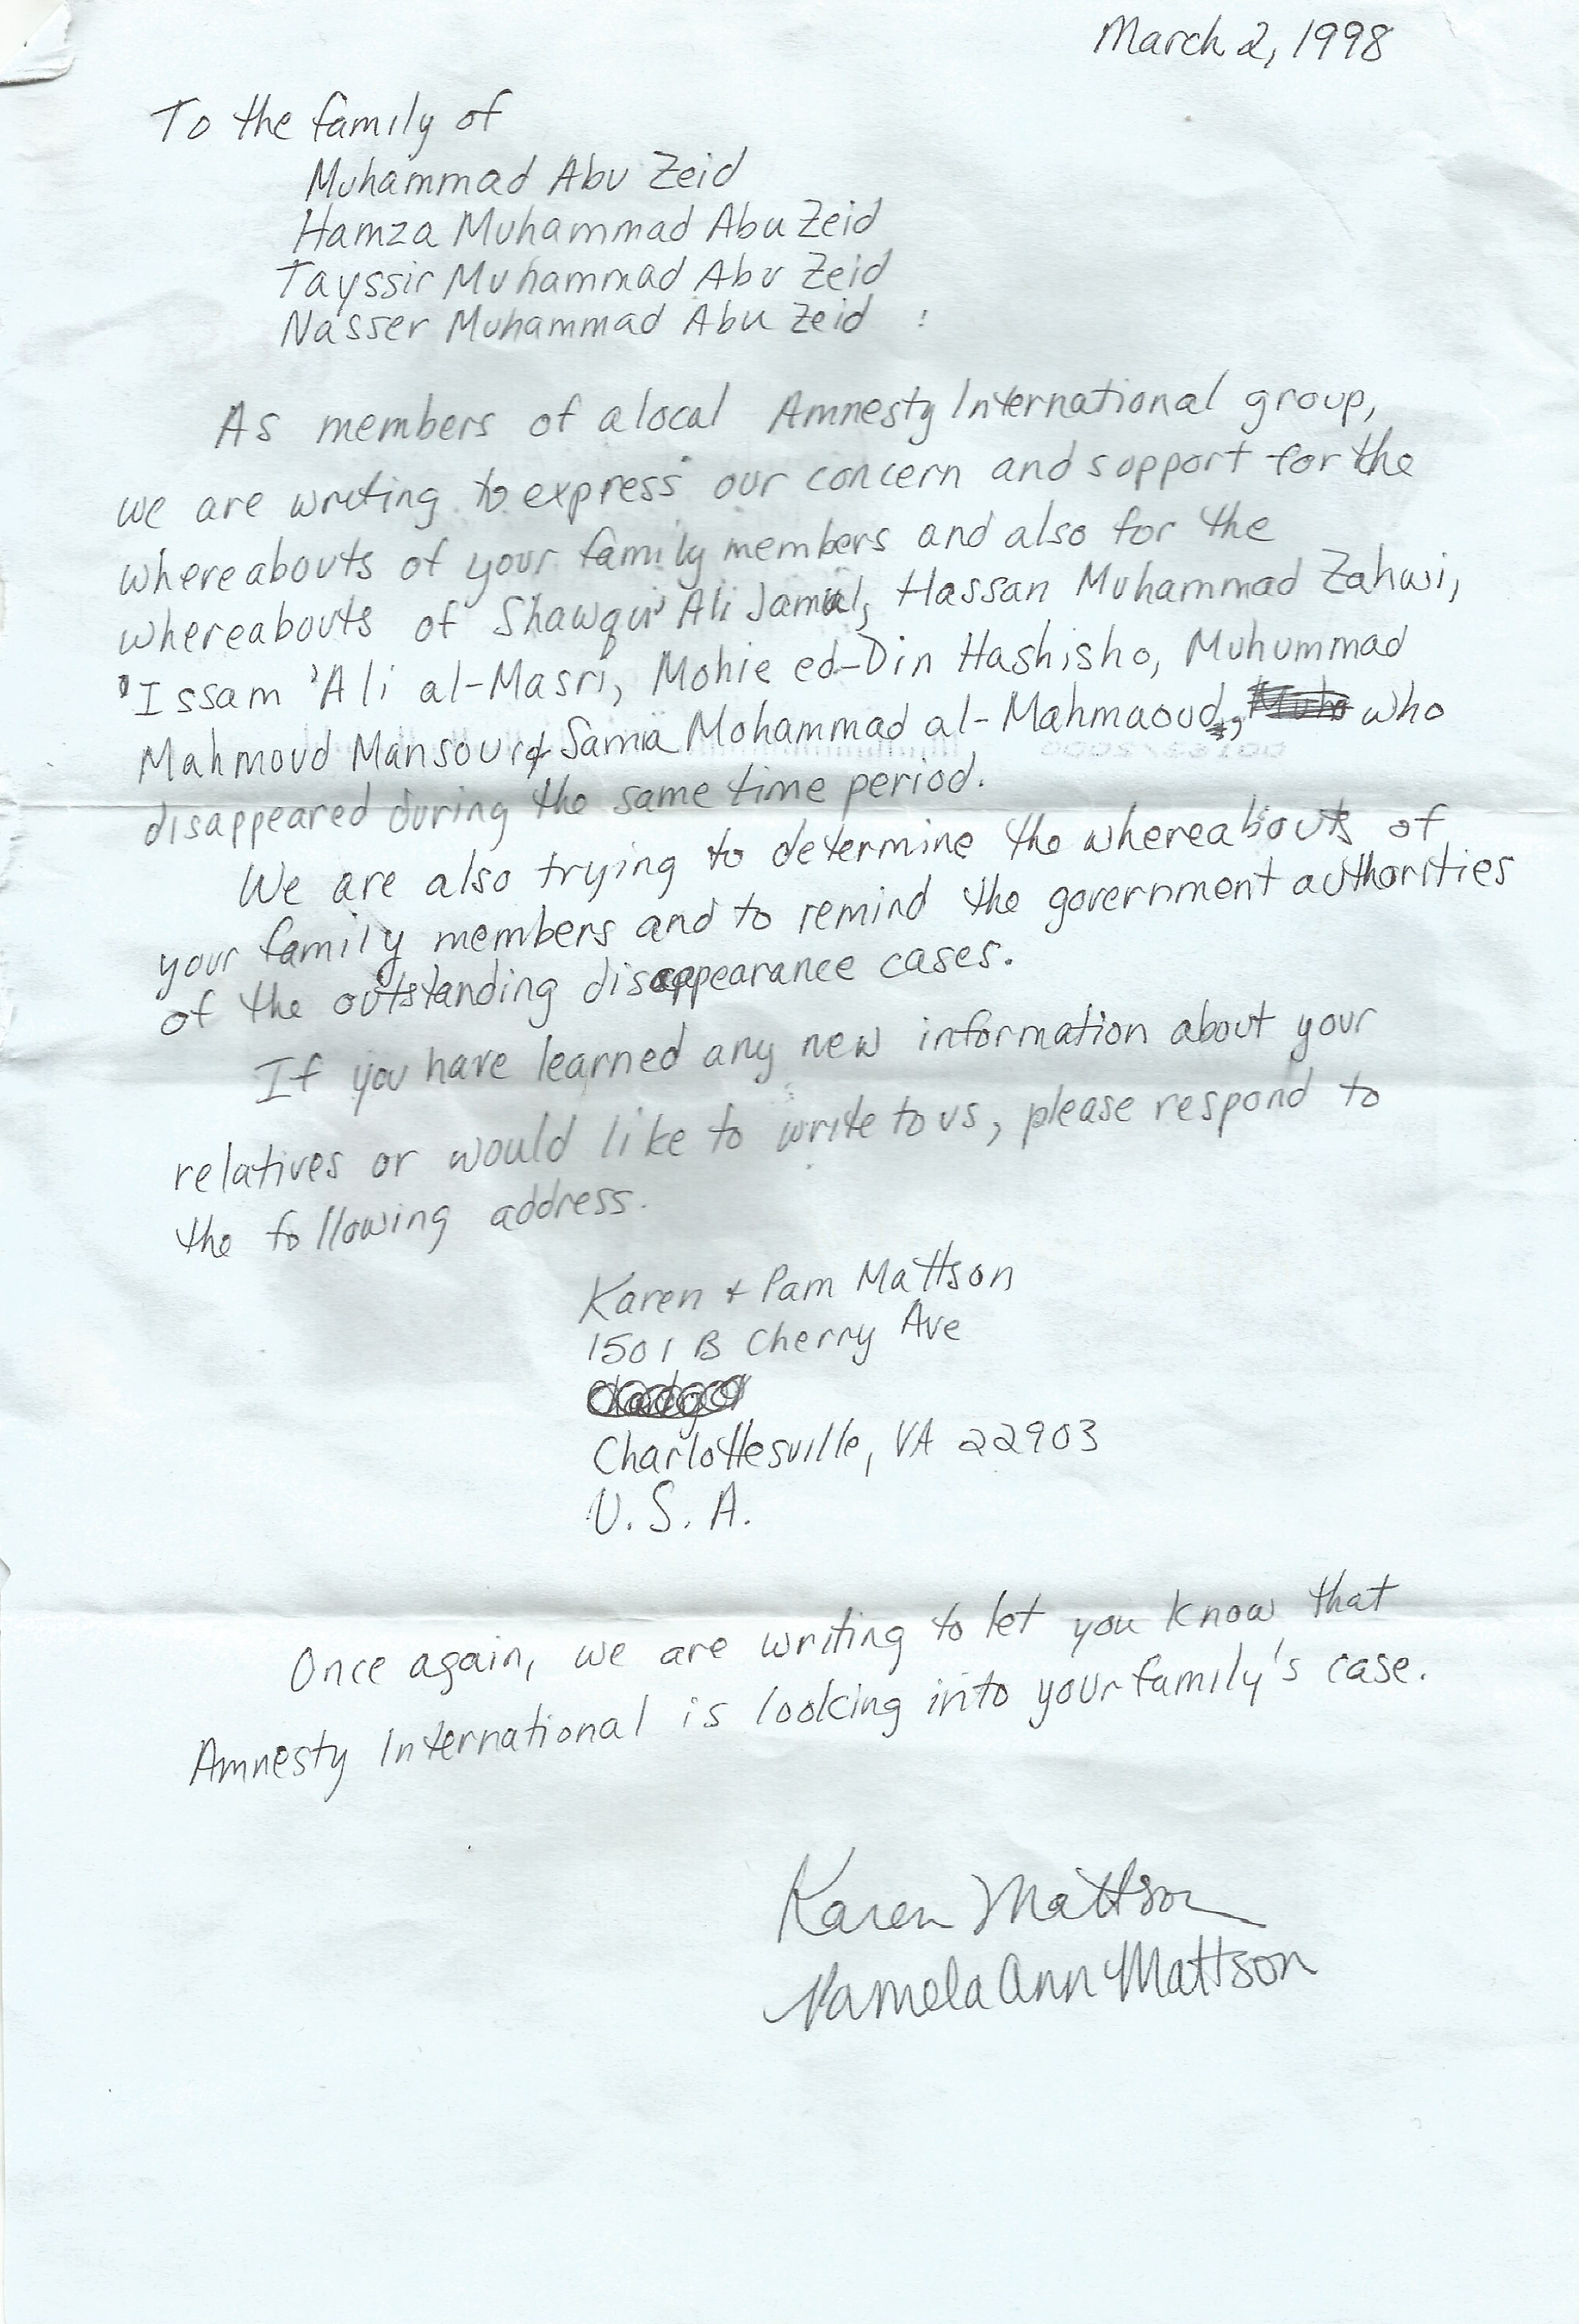 March 2, 1998
To the family of
Muhammad Abu Zeid
Hamza Muhammad Abu Zeid
Tayssir Muhammad Abu Zeid
Nasser Muhammad Abu Zeid :
As members of a local Amnesty International group,
we are writing to express our concern and support for the
whereabouts of your family members and also for the
whereabouts of Shawqui 'Ali Jamal, Hassan Muhammad Zahwi,
'Issam 'Ali al-Masri, Mohie ed-Din Hashisho, Muhummad
Mahmoud Mansour & Samia Mohammad al-Mahmaoud, who
disappeared during the same time period.
We are also trying to determine the whereabouts of
your family members and to remind the government authorities
of the outstanding disappearance cases.
If you have learned any new information about your
relatives or would like to write to us, please respond to
the following address.
Karen + Pam Mattson
1501 B Cherry Ave
Charlottesville, VA 22903
U.S.A.
Once again, we are writing to let you know that
Amnesty International is looking into your family's case.
Karen Mattson
Pamela Ann Mattson